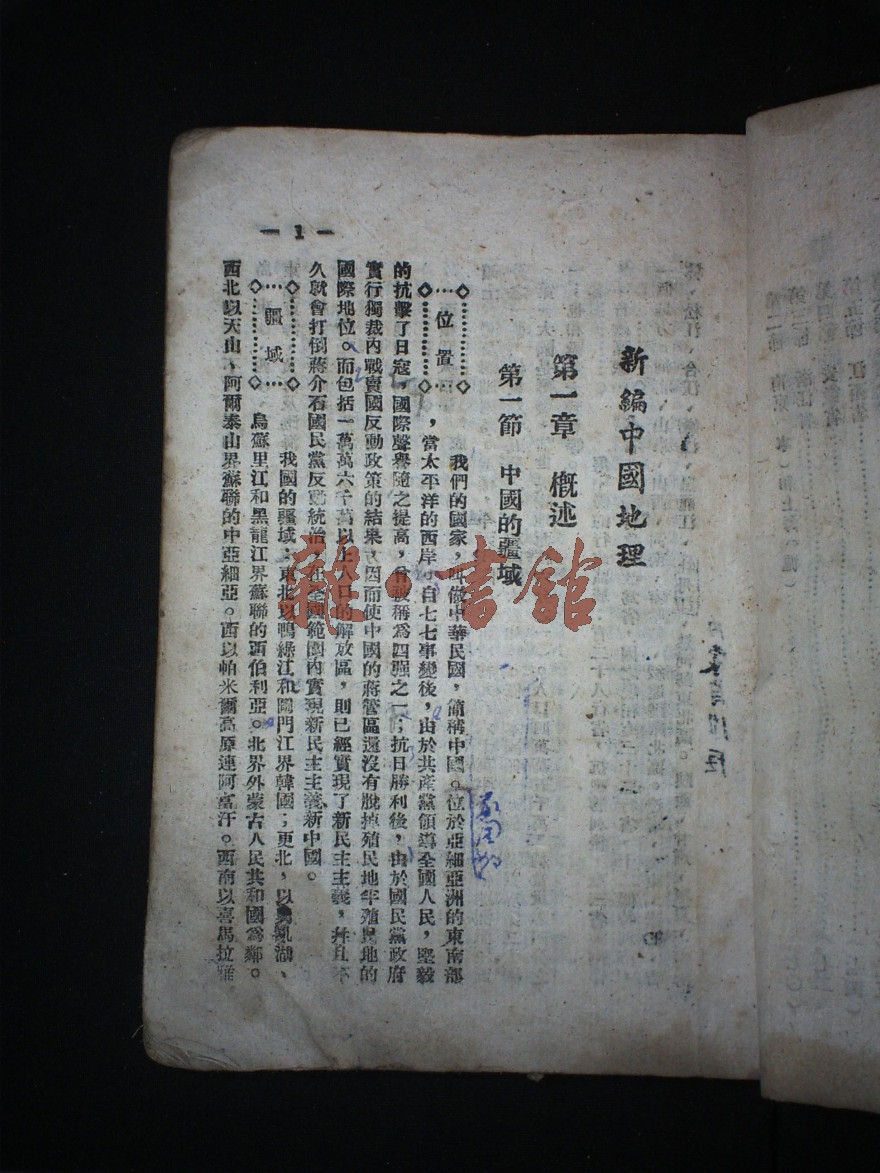 新編中國地理
第一章　概述
第一節　中國的疆域
位置
我們的國家，叫做中華民國，簡稱中國。位於亞細亞洲的東南部
，當太平洋的西岸。自七七事變後，由於共產黨領導全國人民，堅毅
的抗擊了日寇，國際聲譽隨之提高，曾被稱爲四强之一；抗日勝利後，由於國民黨政府
實行獨裁內戰賣國反動政策的結果，因而使中國的蔣管區還沒有脫掉殖民地半殖民地的
國際地位。而包括一萬萬六千萬以上人口的解放區，則已經實現了新民主主義，幷且不
久就會打倒蔣介石國民黨反動統治，在全國範圍內實現新民主主義新中國。
疆域
我國的疆域：東北以鴨綠江和圖們江界韓國；更北，以興凱湖、
烏蘇里江和黑龍江界蘇聯的西伯利亞。北界外蒙古人民共和國爲鄰。
西北以天山、阿爾泰山界蘇聯的中亞細亞。西以帕米爾高原連阿富汗。西南以喜馬拉雅
— 1 —
龍・書館